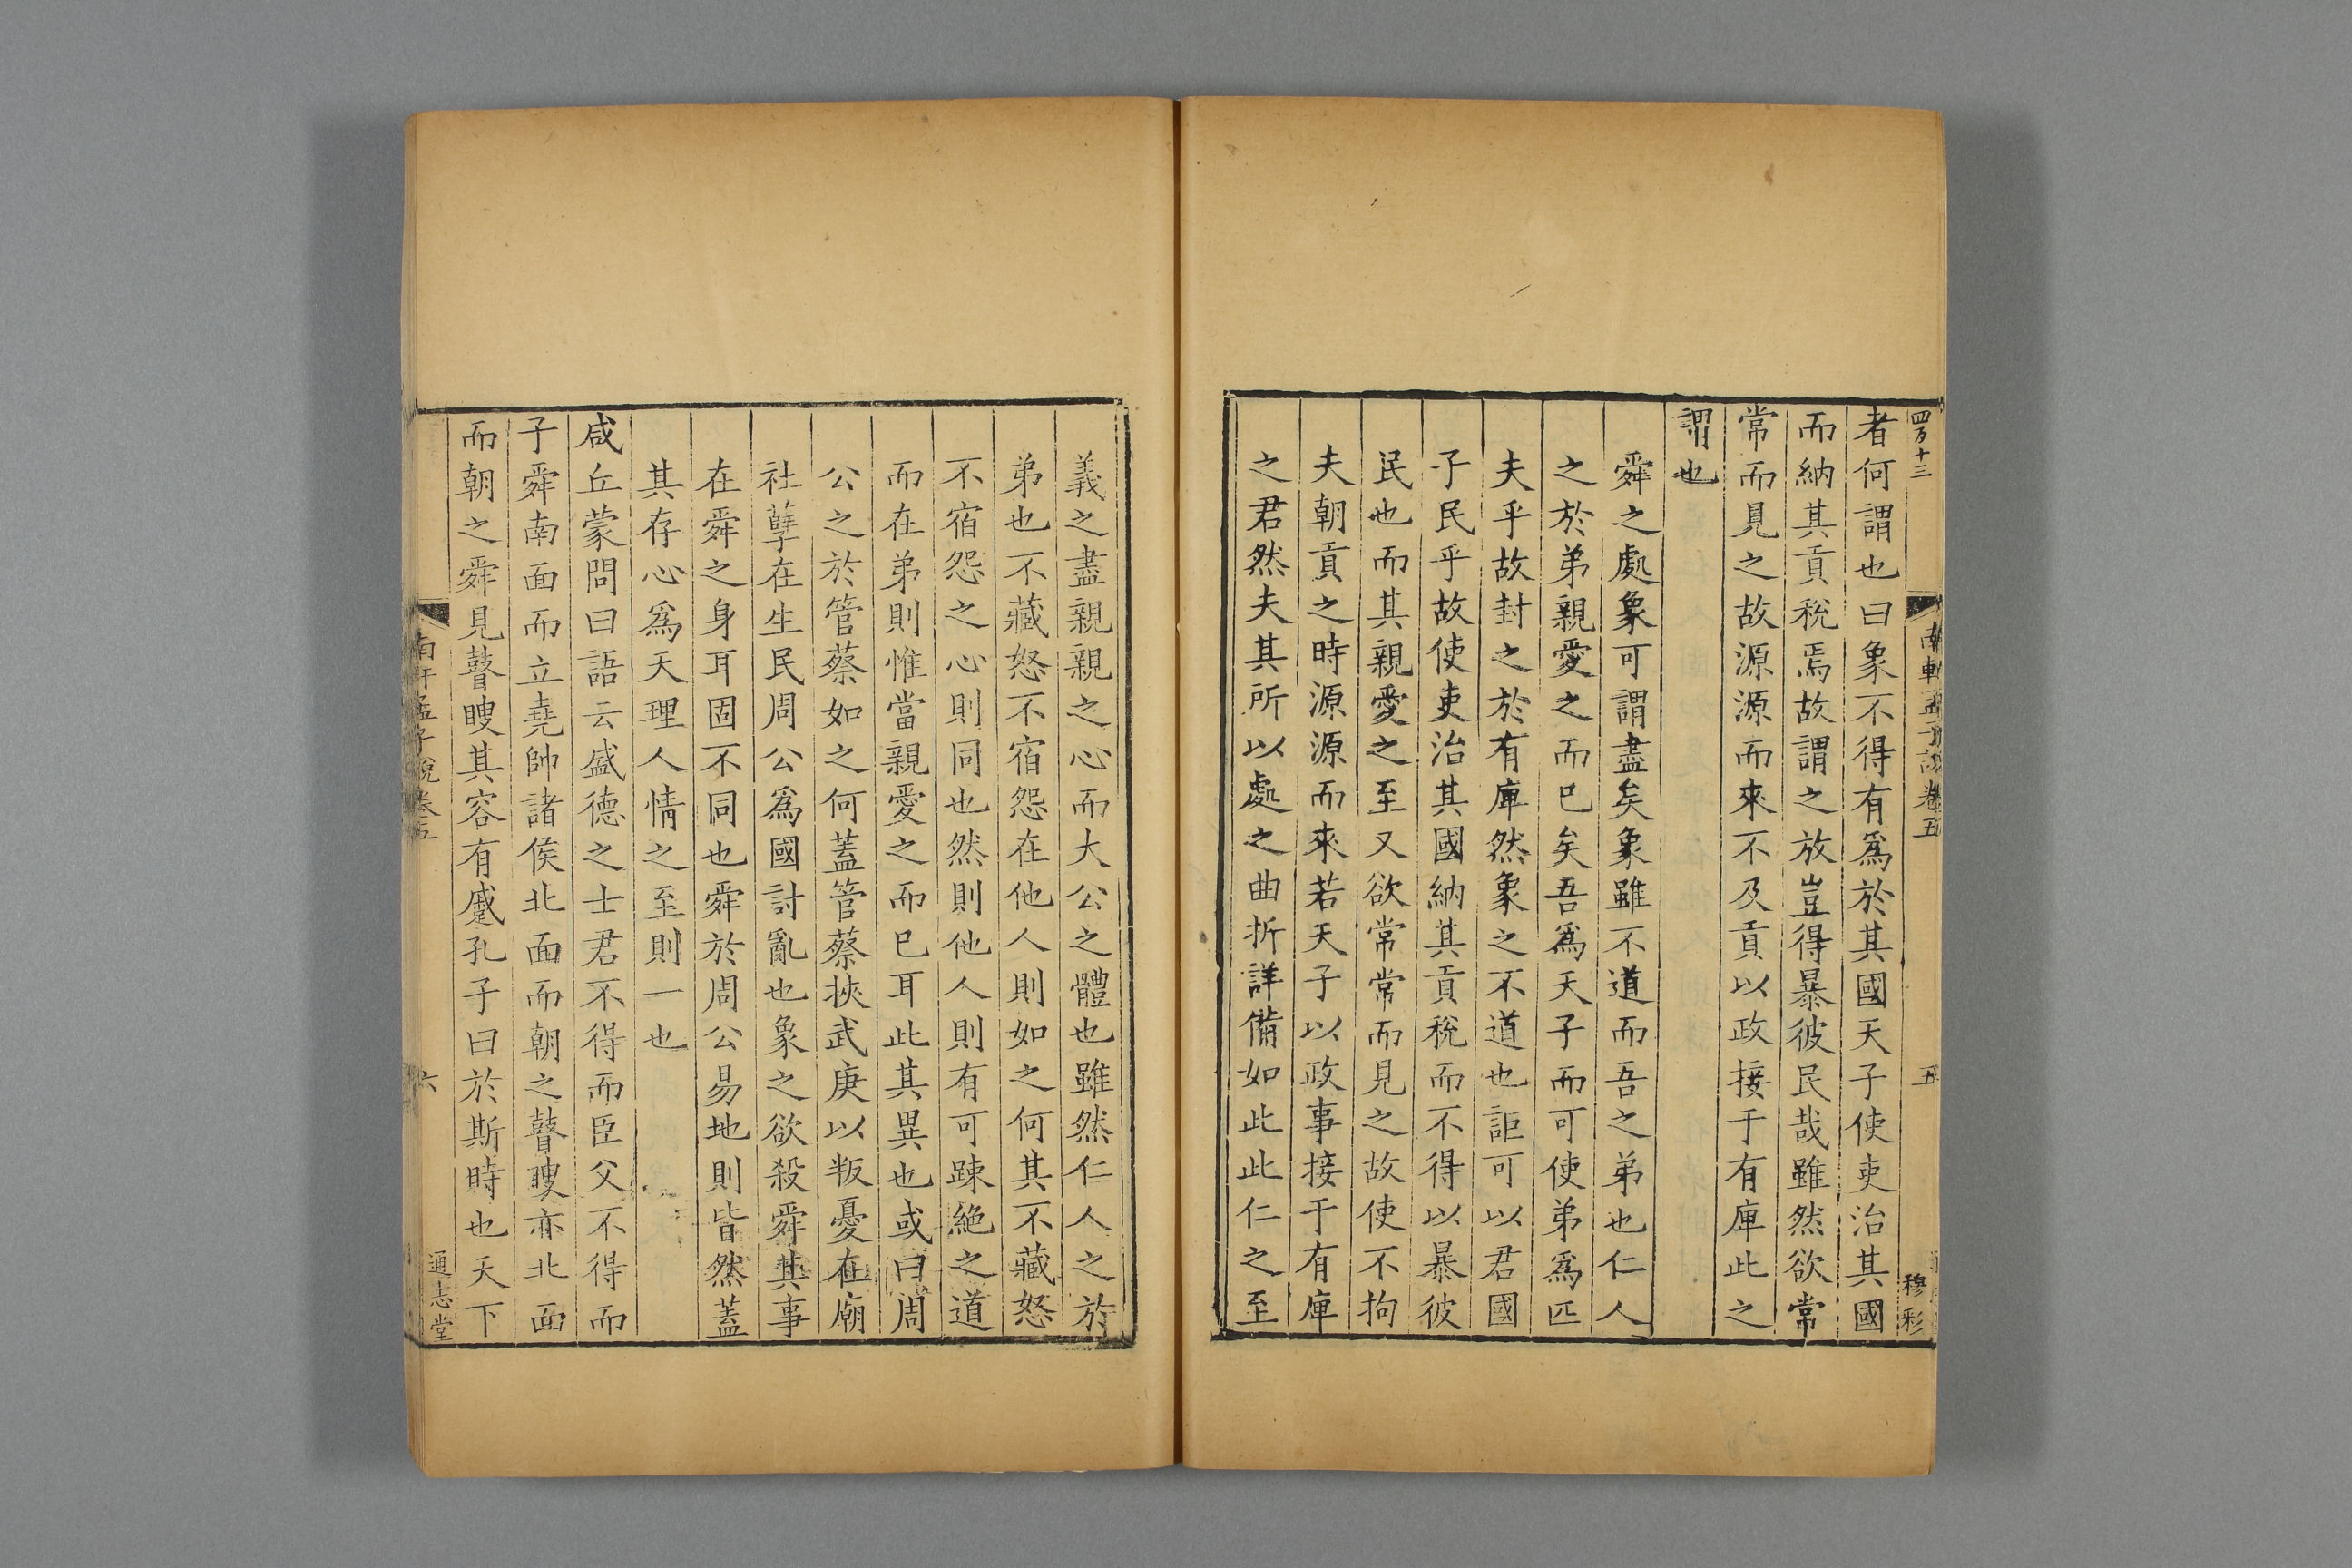 四百十三
南軒孟子說卷五
五
穆彩
者何謂也曰象不得有爲於其國天子使吏治其國
而納其貢稅焉故謂之放豈得暴彼民哉雖然欲常
常而見之故源源而來不及貢以政接于有庳此之
謂也
舜之處象可謂盡矣象雖不道而吾之弟也仁人
之於弟親愛之而已矣吾爲天子而可使弟爲匹
夫乎故封之於有庳然象之不道也詎可以君國
子民乎故使吏治其國納其貢稅而不得以暴彼
民也而其親愛之至又欲常常而見之故使不拘
夫朝貢之時源源而來若天子以政事接于有庳
之君然夫其所以處之曲折詳備如此此仁之至
義之盡親親之心而大公之體也雖然仁人之於
弟也不藏怒不宿怨在他人則如之何其不藏怒
不宿怨之心則同也然則他人則有可踈絶之道
而在弟則惟當親愛之而已耳此其異也或曰周
公之於管蔡如之何蓋管蔡挾武庚以叛憂在廟
社孽在生民周公爲國討亂也象之欲殺舜其事
在舜之身耳固不同也舜於周公易地則皆然蓋
其存心爲天理人情之至則一也
咸丘蒙問曰語云盛德之士君不得而臣父不得而
子舜南面而立堯帥諸侯北面而朝之瞽瞍亦北面
而朝之舜見瞽瞍其容有蹙孔子曰於斯時也天下
南軒孟子說卷五
六
通志堂